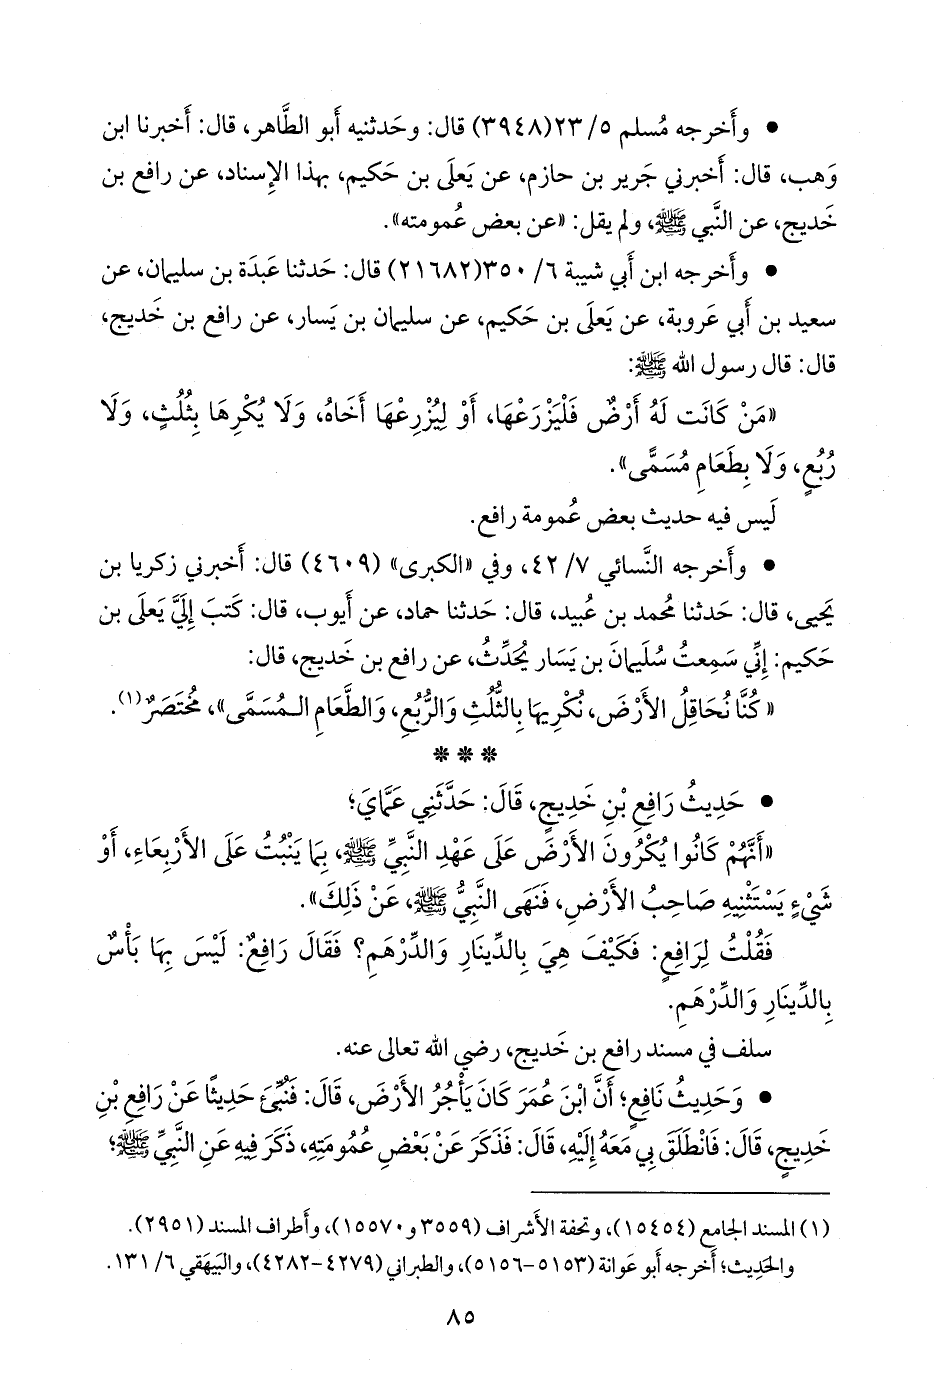 • وأَخرجه مُسلم ٥/ ٢٣(٣٩٤٨) قال: وحَدثنيه أَبو الطَّاهر، قال: أَخبرنا ابن
وَهب، قال: أَخبرني جَرير بن حازم، عن يَعلَى بن حَكيم، بهذا الإِسناد، عن رافع بن
خَديج، عن النَّبي ﷺ، ولم يقل: «عن بعض عُمومته».
• وأَخرجه ابن أَبي شيبة ٦/ ٣٥٠(٢١٦٨٢) قال: حَدثنا عَبدَة بن سليمان، عن
سعيد بن أَبي عَروبة، عن يَعلَى بن حَكيم، عن سليمان بن يَسار، عن رافع بن خَديج،
قال: قال رسول الله ﷺ:
«مَنْ كَانَت لَهُ أَرْضٌ فَلْيَزْرَعْهَا، أَوْ لِيُزْرِعْهَا أَخَاهُ، وَلَا يُكْرِهَا بِثُلُثٍ، وَلَا
رُبُعٍ، وَلَا بِطَعَامٍ مُسَمًّى».
لَيس فيه حديث بعض عُمومة رافع.
• وأَخرجه النَّسائي ٧/ ٤٢، وفي «الكبرى» (٤٦٠٩) قال: أَخبرني زكريا بن
يَحيى، قال: حَدثنا مُحمد بن عُبيد، قال: حَدثنا حماد، عن أَيوب، قال: كَتبَ إِلَيَّ يَعلَى بن
حَكيم: إِنِّي سَمِعتُ سُلَيمانَ بن يَسَار يُحَدِّثُ، عن رافع بن خَديج، قال:
«كُنَّا نُحَاقِلُ الأَرْضَ، نُكْرِيهَا بِالثُّلُثِ وَالرُّبُعِ، وَالطَّعَامِ الـمُسَمَّى»، مُختَصَرٌ(١).
* * *
• حَدِيثُ رَافِعِ بْنِ خَدِيجٍ، قَالَ: حَدَّثَنِي عَمَّايَ؛
«أَنَّهُمْ كَانُوا يُكْرُونَ الأَرْضَ عَلَى عَهْدِ النَّبِيِّ ﷺ، بِمَا يَنْبُتُ عَلَى الأَرْبِعَاءِ، أَوْ
شَيْءٍ يَسْتَثْنِيهِ صَاحِبُ الأَرْضِ، فَنَهَى النَّبِيُّ ﷺ، عَنْ ذَلِكَ».
فَقُلْتُ لِرَافِعٍ: فَكَيْفَ هِيَ بِالدِّينَارِ وَالدِّرْهَمِ؟ فَقَالَ رَافِعٌ: لَيْسَ بِهَا بَأْسٌ
بِالدِّينَارِ وَالدِّرْهَمِ.
سلف في مسند رافع بن خَديج، رضي الله تعالى عنه.
• وَحَدِيثُ نَافِعٍ؛ أَنَّ ابْنَ عُمَرَ كَانَ يَأْجُرُ الأَرْضَ، قَالَ: فَنُبِّئَ حَدِيثًا عَنْ رَافِعِ بْنِ
خَدِيجٍ، قَالَ: فَانْطَلَقَ بِي مَعَهُ إِلَيْهِ، قَالَ: فَذَكَرَ عَنْ بَعْضِ عُمُومَتِهِ، ذَكَرَ فِيهِ عَنِ النَّبِيِّ ﷺ؛
(١) المسند الجامع (١٥٤٥٤)، وتحفة الأَشراف (٣٥٥٩ و١٥٥٧٠)، وأَطراف المسند (٢٩٥١).
والحَدِيث؛ أَخرجه أَبو عَوانة (٥١٥٣-٥١٥٦)، والطبراني (٤٢٧٩-٤٢٨٢)، والبَيهَقي ٦/ ١٣١.
٨٥